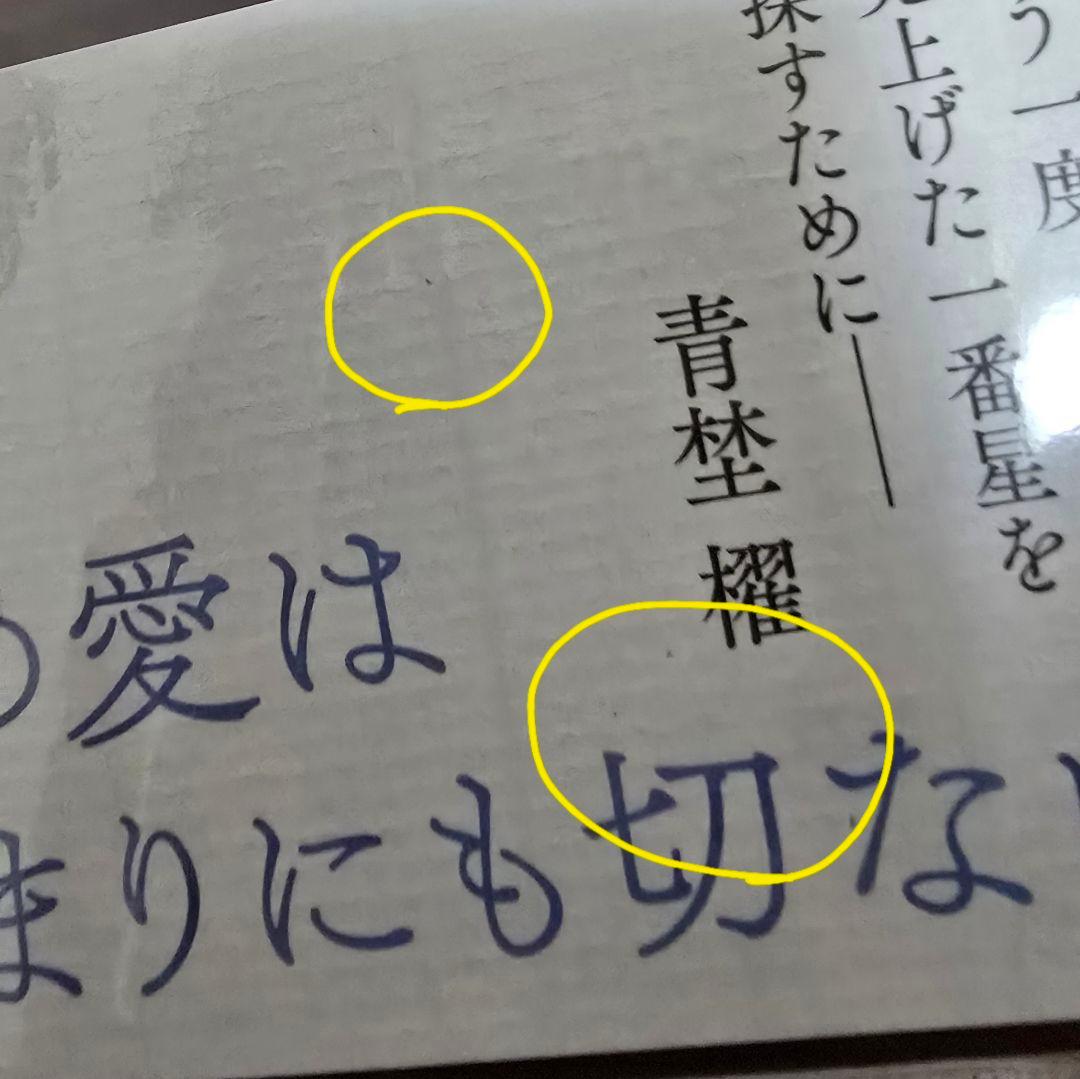 う一度
見上げた一番星を
探すために――
青埜 櫂
の愛は
まりにも切な